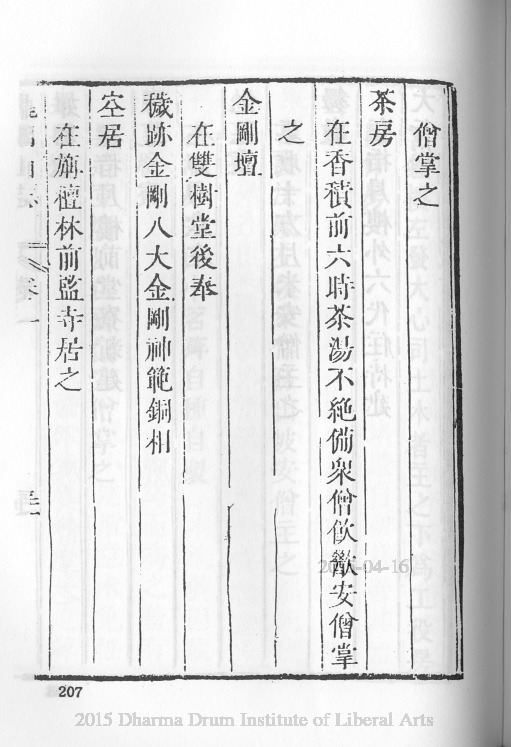 僧掌之
茶房
在香積前六時茶湯不絶備衆僧飲歠安僧掌
之
金剛壇
在雙樹堂後奉
穢跡金剛八大金剛神範銅相
空居
在旃檀林前監寺居之
卷一
207
2015 Dharma Drum Institute of Liberal Arts